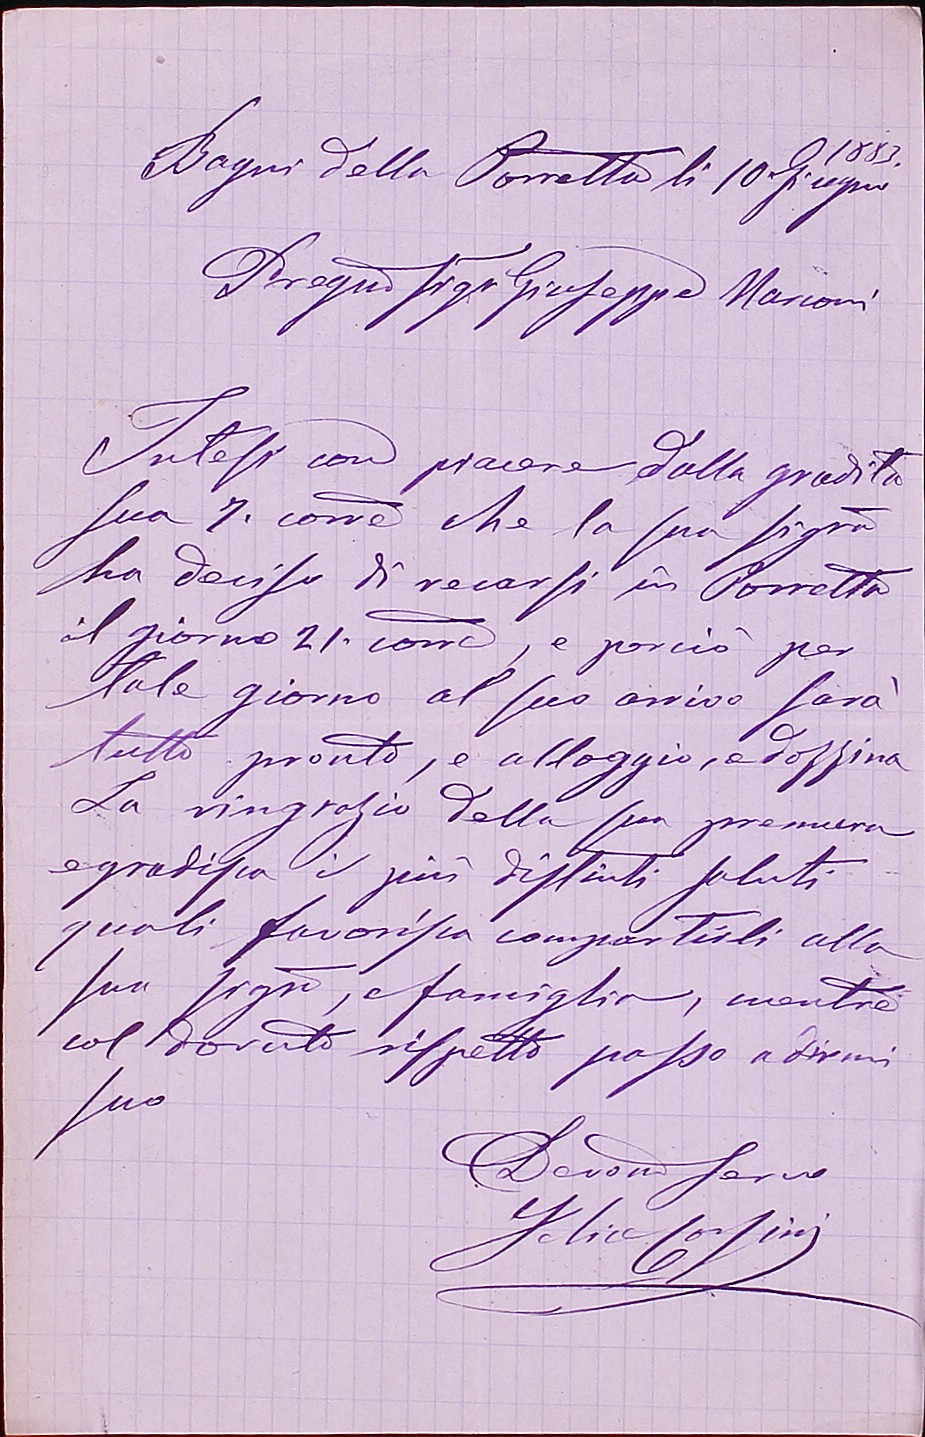 Bagni della Porretta li 10 Giugno 1883.
Pregmo Sigr Giuseppe Marconi
Intesi con piacere dalla gradita
sua 7. corre che la sua sigra
ha deciso di recarsi in Porretta
il giorno 21. corre, e perciò per
tale giorno al suo arrivo sarà
tutto pronto, e alloggio, e dozzina
La ringrazio della sua premura
e gradisca i più distinti saluti
quali favorisca compartirli alla
sua sigra, e famiglia, mentre
col dovuto rispetto passo a dirmi
suo
Devomo servo
Felice Corsini